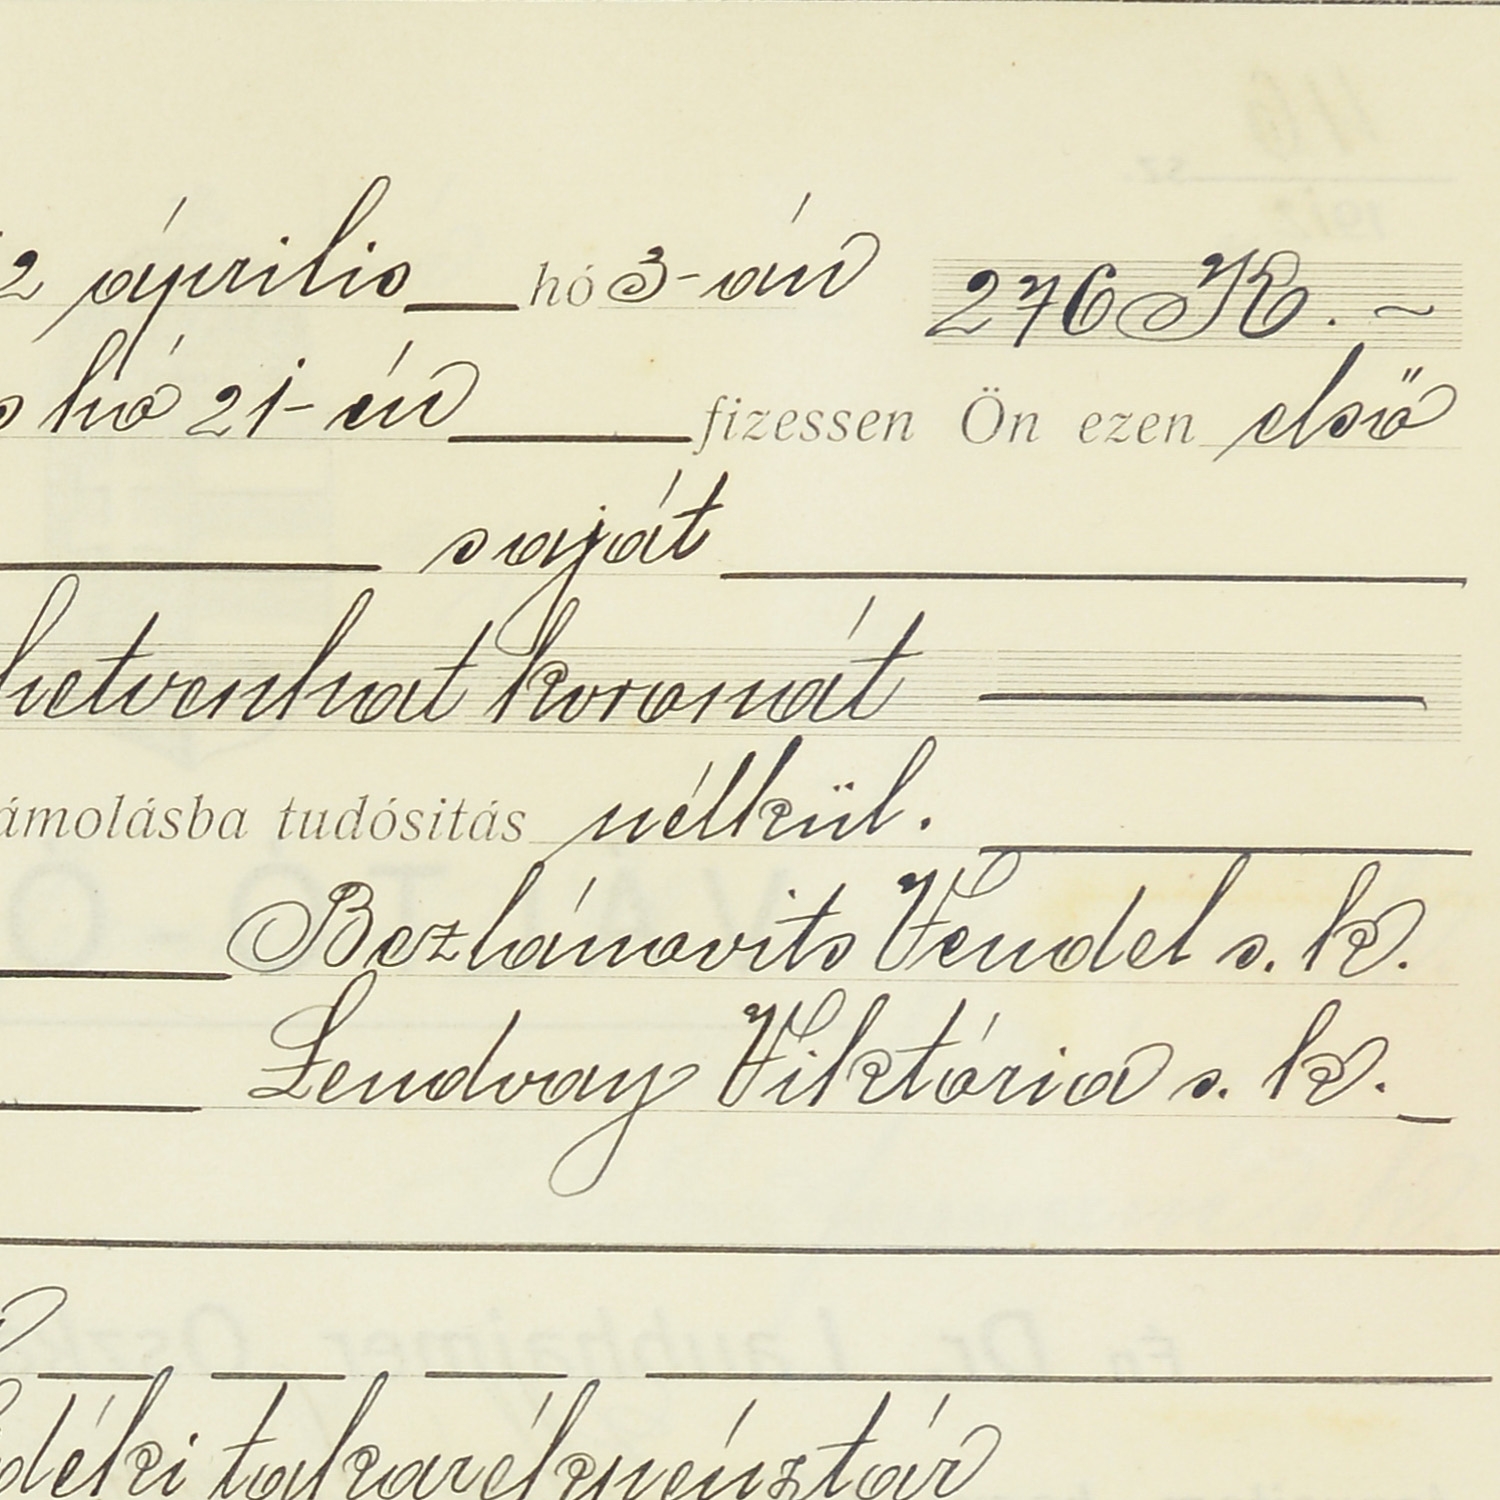 2 április hó 3-án 276 K. ~
s hó 21-én fizessen Ön ezen első
saját
hetvenhat koronát
ámolásba tudósitás nélkül.
Bezlánovits Vendel s. k.
Lendvay Viktória s. k.
déki takarékpénztár